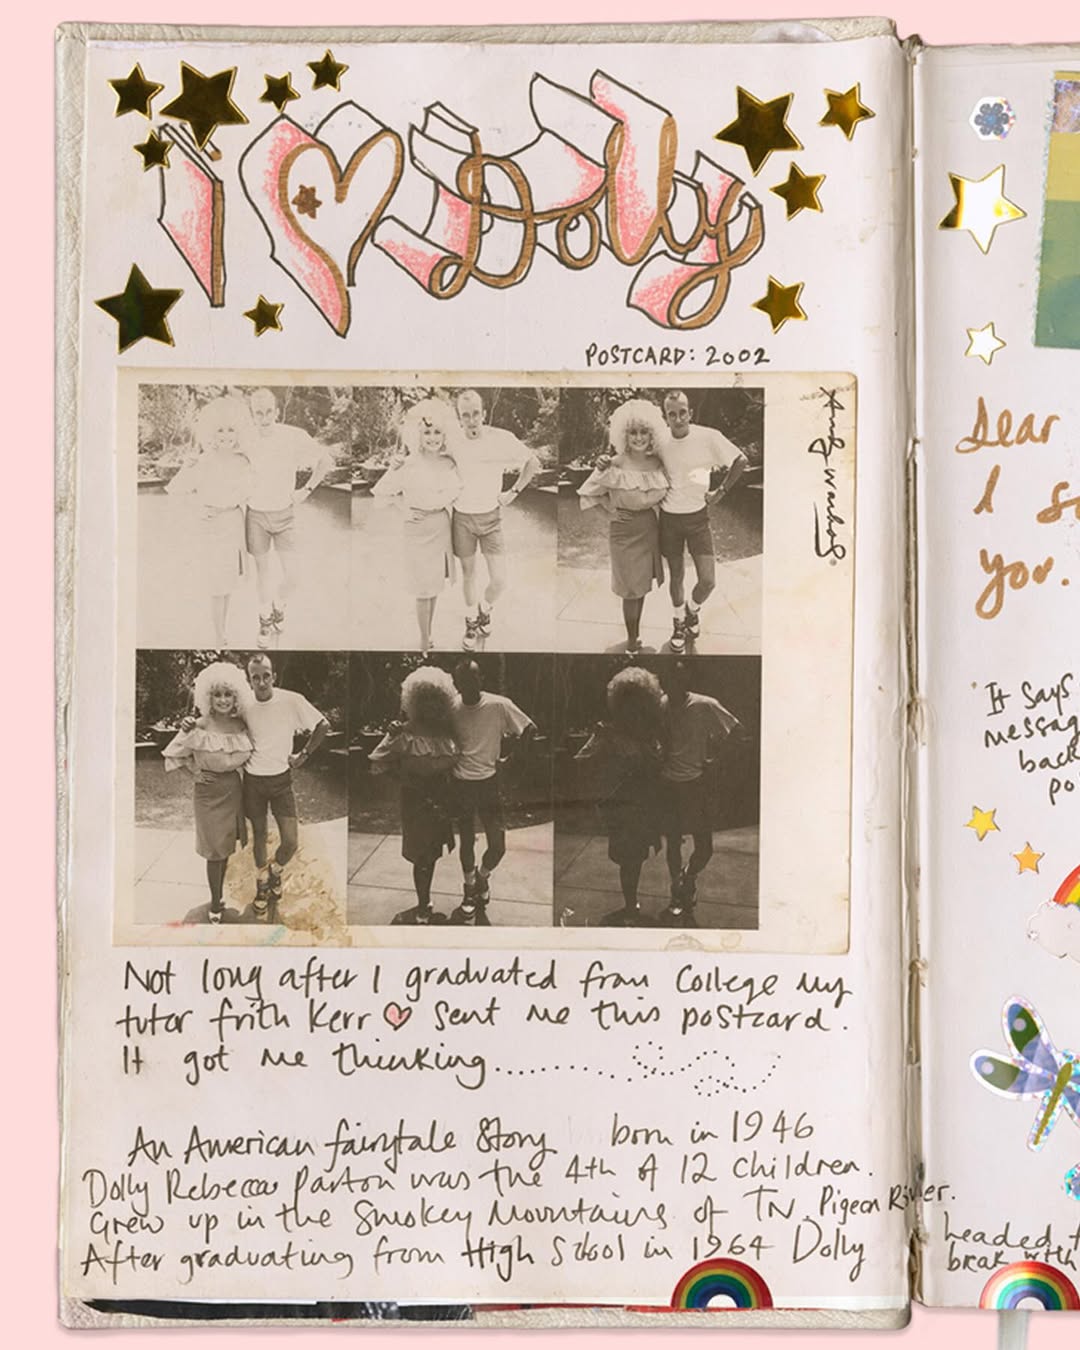 I ♡ Dolly
POSTCARD: 2002
Andy Warhol
Not long after I graduated from College my
tutor frith Kerr ♡ sent me this postcard.
It got me thinking..........
An American fairytale Story born in 1946
Dolly Rebecca Parton was the 4th of 12 children.
Grew up in the Smokey Mountains of TN. Pigeon River.
After graduating from High School in 1964 Dolly
Dear
I
you.
It says
messag
back
po
headed
break with